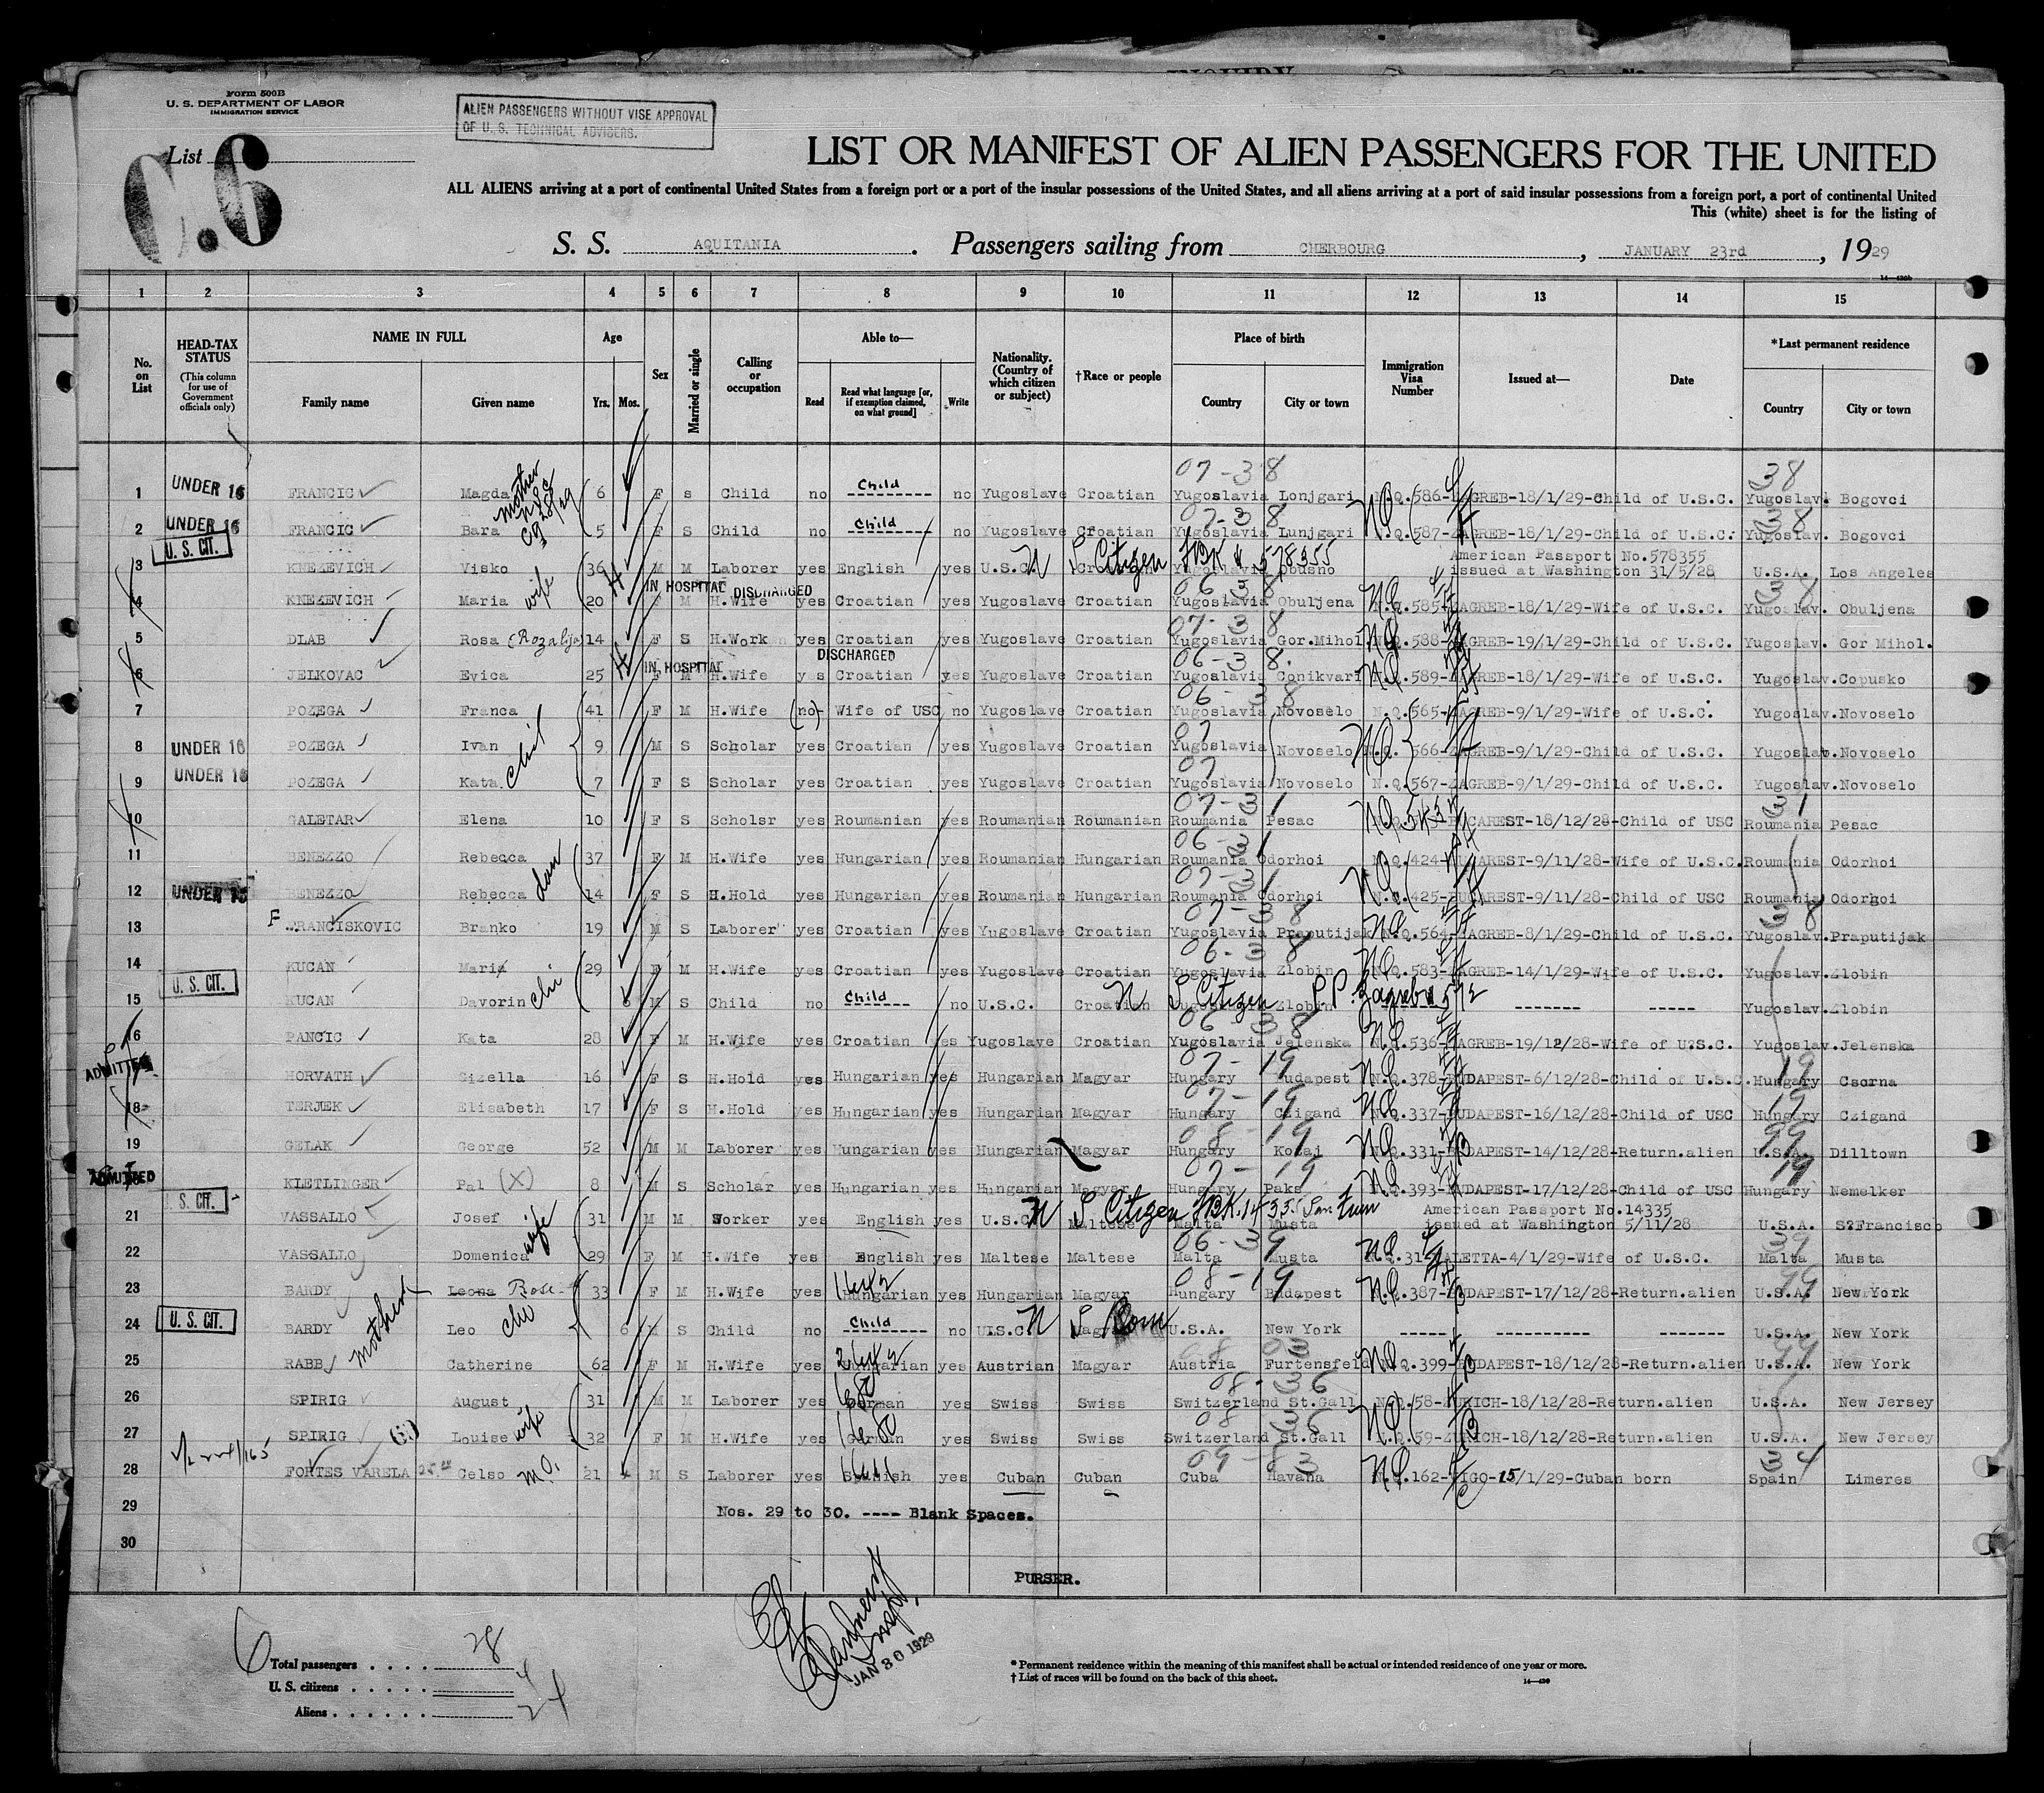 Form 500B
U. S. DEPARTMENT OF LABOR
IMMIGRATION SERVICE
ALIEN PASSENGERS WITHOUT VISE APPROVAL
OF U. S. TECHNICAL ADVISERS.
List
C.6
LIST OR MANIFEST OF ALIEN PASSENGERS FOR THE UNITED
ALL ALIENS arriving at a port of continental United States from a foreign port or a port of the insular possessions of the United States, and all aliens arriving at a port of said insular possessions from a foreign port, a port of continental United
This (white) sheet is for the listing of
S. S. AQUITANIA. Passengers sailing from CHERBOURG, JANUARY 23rd, 1929
1 2 3 4 5 6 7 8 9 10 11 12 13 14 15
No. on List
HEAD-TAX STATUS (This column for use of Government officials only)
NAME IN FULL Family name Given name
Age Yrs. Mos.
Sex
Married or single
Calling or occupation
Able to— Read Read what language [or, if exemption claimed, on what ground] Write
Nationality. (Country of which citizen or subject)
†Race or people
Place of birth Country City or town
Immigration Visa Number
Issued at—
Date
*Last permanent residence Country City or town
07-38 38
1 UNDER 16 FRANCIC Magda mother 6 F s Child no Child no Yugoslave Croatian Yugoslavia Lonjgari N.Q.586-ZAGREB-18/1/29-Child of U.S.C. Yugoslav. Bogovci
07-38 38
2 UNDER 16 FRANCIC Bara 5 F S Child no Child no Yugoslave Croatian Yugoslavia Lunjgari N.Q.587-ZAGREB-18/1/29-Child of U.S.C. Yugoslav. Bogovci
U. S. CIT. American Passport No.578355
3 KNEZEVICH Visko 36 M M Laborer yes English yes U.S.C. N S Citizen 578355 issued at Washington 31/5/28 U.S.A. Los Angeles
IN HOSPITAL DISCHARGED 06-38 38
4 KNEZEVICH Maria wife 20 F M H.Wife yes Croatian yes Yugoslave Croatian Yugoslavia Obuljena N.Q.585-ZAGREB-18/1/29-Wife of U.S.C. Yugoslav. Obuljena
07-38
5 DLAB Rosa (Rozalija) 14 F S H.Work yes Croatian yes Yugoslave Croatian Yugoslavia Gor.Mihol N.Q.588-ZAGREB-19/1/29-Child of U.S.C. Yugoslav. Gor Mihol.
IN HOSPITAL DISCHARGED 06-38.
6 JELKOVAC Evica 25 F M H.Wife y s Croatian yes Yugoslave Croatian Yugoslavia Conikvari N.Q.589-ZAGREB-18/1/29-Wife of U.S.C. Yugoslav.Copusko
06-38
7 POZEGA Franca 41 F M H.Wife (no) Wife of USC no Yugoslave Croatian Yugoslavia Novoselo N.Q.565-ZAGREB-9/1/29-Wife of U.S.C. Yugoslav.Novoselo
07
8 UNDER 16 POZEGA Ivan 9 M S Scholar yes Croatian yes Yugoslave Croatian Yugoslavia Novoselo N.Q.566-ZAGREB-9/1/29-Child of U.S.C. Yugoslav.Novoselo
07
9 UNDER 16 POZEGA Kata 7 F S Scholar yes Croatian yes Yugoslave Croatian Yugoslavia Novoselo N.Q.567-ZAGREB-9/1/29-Child of U.S.C. Yugoslav.Novoselo
07-31 31
10 GALETAR Elena 10 F S Scholsr yes Roumanian yes Roumanian Roumanian Roumania Pesac BUCAREST-18/12/28-Child of USC Roumania Pesac
06-31
11 BENEZZO Rebecca 37 F M H.Wife yes Hungarian yes Roumanian Hungarian Roumania Odorhoi N.Q.424-BUCAREST-9/11/28-Wife of U.S.C. Roumania Odorhoi
07-31
12 UNDER 16 BENEZZO Rebecca dau 14 F S H.Hold yes Hungarian yes Roumanian Hungarian Roumania Odorhoi N.Q.425-BUCAREST-9/11/28-Child of USC Roumania Odorhoi
07-38 38
13 FRANCISKOVIC Branko 19 M S Laborer yes Croatian yes Yugoslave Croatian Yugoslavia Praputijak N.Q.564-ZAGREB-8/1/29-Child of U.S.C. Yugoslav.Praputijak
06-38
14 KUCAN Maria 29 F M H.Wife yes Croatian yes Yugoslave Croatian Yugoslavia Zlobin N.Q.583-ZAGREB-14/1/29-Wife of U.S.C. Yugoslav.Zlobin
U. S. CIT.
15 KUCAN Davorin 6 M S Child no Child no U.S.C. Croatian N S Citizen Zlobin P.P. Zagreb # 572 Yugoslav.Zlobin
06-38
16 PANCIC Kata 28 F M H.Wife yes Croatian yes Yugoslave Croatian Yugoslavia Jelenska N.Q.536-ZAGREB-19/12/28-Wife of U?S.C. Yugoslav.Jelenska
ADMITTED 07-19 19
HORVATH Gizella 16 F S H.Hold yes Hungarian yes Hungarian Magyar Hungary Budapest N.Q.378-BUDAPEST-6/12/28-Child of U.S.C. Hungary Csorna
07-19 19
18 TERJEK Elisabeth 17 F S H.Hold yes Hungarian yes Hungarian Magyar Hungary Czigand N.Q.337-BUDAPEST-16/12/28-Child of USC Hungary Czigand
08-19 99
19 GELAK George 52 M M Laborer yes Hungarian yes Hungarian Magyar Hungary Kotaj N.Q.331-BUDAPEST-14/12/28-Return.alien U.S.A. Dilltown
ADMITTED 07-19 19
KLETLINGER Pal (X) 8 M S Scholar yes Hungarian yes Hungarian Magyar Hungary Paks N.Q.393-BUDAPEST-17/12/28-Child of USC Hungary Nemelker
U. S. CIT. American Passport No.14335
21 VASSALLO Josef 31 M M Worker yes English yes U.S.C. N S Citizen Maltese Malta Musta issued at Washington 5/11/28 U.S.A. S?Francisco
06-39 39
22 VASSALLO Domenica wife 29 F M H.Wife yes English yes Maltese Maltese Malta Musta N.Q.31-VALETTA-4/1/29-Wife of U.S.C. Malta Musta
08-19 99
23 BARDY Leona Rose 33 F M H.Wife yes Hungarian yes Hungarian Magyar Hungary Budapest N.Q.387-BUDAPEST-17/12/28-Return.alien U.S.A. New York
24 U. S. CIT. BARDY Leo 6 M S Child no Child no U.S.C. N S Born U.S.A. New York U.S.A. New York
08 03 99
25 RABB mother Catherine 62 F M H.Wife yes Hungarian yes Austrian Magyar Austria Furtensfeld N.Q.399-BUDAPEST-18/12/28-Return.alien U.S.A. New York
08-36
26 SPIRIG August 31 M M Laborer yes German yes Swiss Swiss Switzerland St.Gall N.Q.58-ZURICH-18/12/28-Return.alien U.S.A. New Jersey
08 36
27 SPIRIG Louise wife 32 F M H.Wife yes German yes Swiss Swiss Switzerland St.Gall N.Q.59-ZURICH-18/12/28-Return.alien U.S.A. New Jersey
09-83 34
28 FORTES VARELA Celso 21 M S Laborer yes Spanish yes Cuban Cuban Cuba Havana N.Q.162-VIGO-15/1/29-Cuban born Spain Limeres
29 Nos. 29 to 30. ---- Blank Spaces.
30
PURSER.
JAN 30 1929
6
Total passengers . . . . 28
U. S. citizens . . . . . 4
Aliens . . . . . . 24
* Permanent residence within the meaning of this manifest shall be actual or intended residence of one year or more.
† List of races will be found on the back of this sheet.